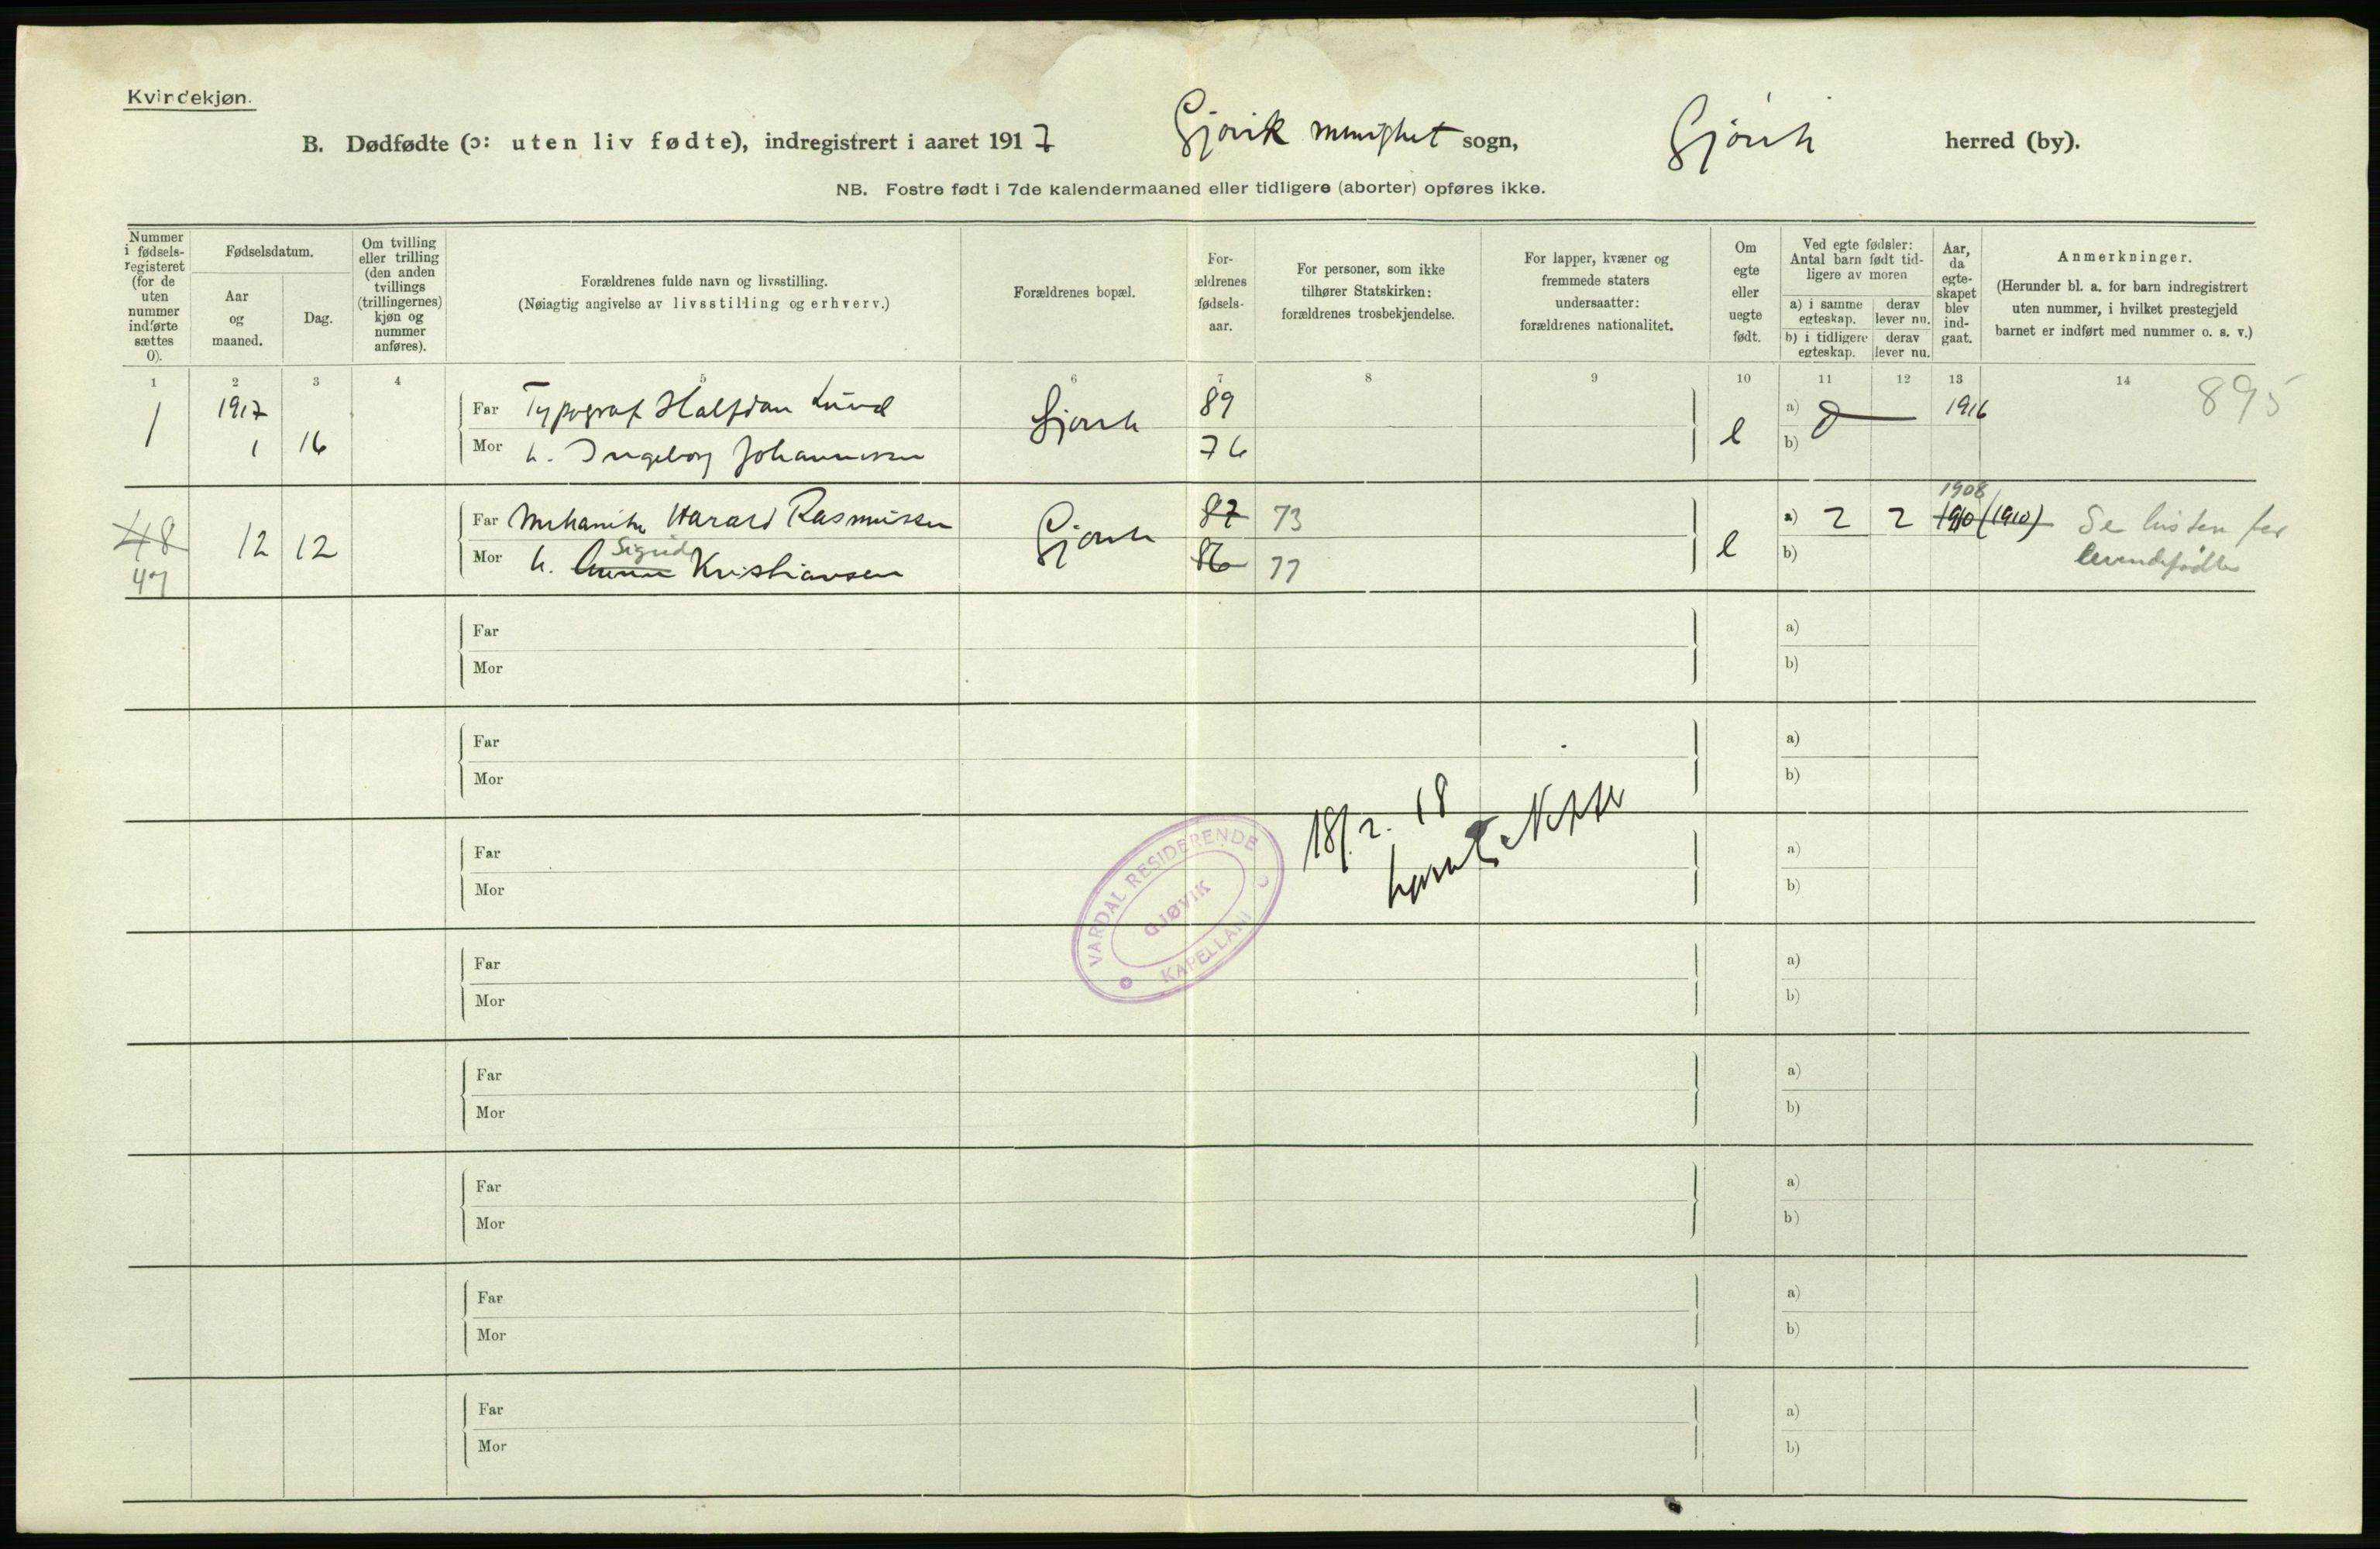 Kvindekjøn.
B. Dødfødte (ɔ: uten liv fødte), indregistrert i aaret 1917 Gjøvik menighet sogn, Gjøvik herred (by).
NB. Fostre født i 7de kalendermaaned eller tidligere (aborter) opføres ikke.
Nummer i fødsels-registeret (for de uten nummer indførte sættes 0).
Fødselsdatum.
Aar og maaned.
Dag.
Om tvilling eller trilling (den anden tvillings (trillingernes) kjøn og nummer anføres).
Forældrenes fulde navn og livsstilling.
(Nøiagtig angivelse av livsstilling og erhverv.)
Forældrenes bopæl.
For-ældrenes fødsels-aar.
For personer, som ikke tilhører Statskirken: forældrenes trosbekjendelse.
For lapper, kvæner og fremmede staters undersaatter: forældrenes nationalitet.
Om egte eller uegte født.
Ved egte fødsler: Antal barn født tid-ligere av moren
a) i samme egteskap.
derav lever nu.
b) i tidligere egteskap.
derav lever nu.
Aar, da egte-skapet blev ind-gaat.
Anmerkninger.
(Herunder bl. a. for barn indregistrert uten nummer, i hvilket prestegjeld barnet er indført med nummer o. s. v.)
1 2 3 4 5 6 7 8 9 10 11 12 13 14
895
1 1917 1 16
Far Typograf Halfdan Lund Gjøvik 89 a) 0 1916
Mor h. Ingeborg Johannessen 76 e b)
48 47 12 12
Far Mekaniker Harald Rasmussen Gjøvik 87 73 a) 2 2 1908 1910 (1910) Se listen for
Mor h. Sigrid Kristiansen 86 77 e b) levendefødte
Far a)
Mor b)
Far a)
Mor b)
18/2. 18
Far a)
Mor b)
VARDAL RESIDERENDE KAPELLANI
GJØVIK
Far a)
Mor b)
Far a)
Mor b)
Far a)
Mor b)
Far a)
Mor b)
Far a)
Mor b)